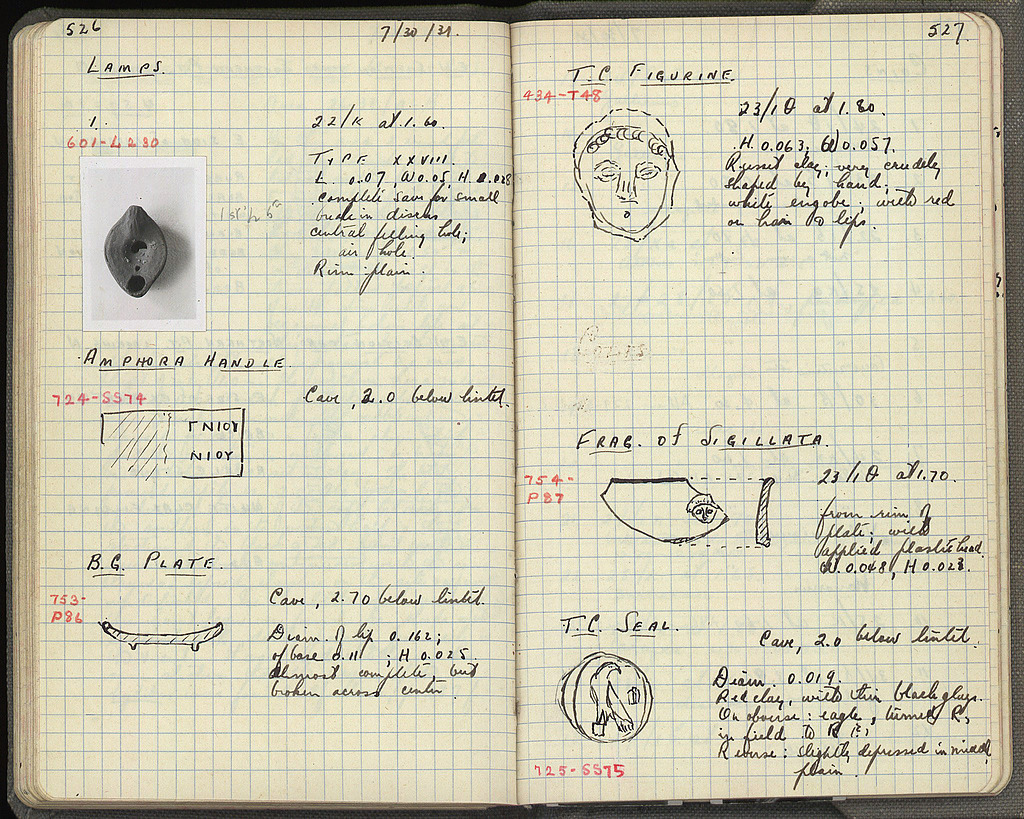 526
7/30/31.
LAMPS.
1.
22/K at 1.60.
601-L230
TYPE XXVIII.
L. 0.07, W 0.05, H. 0.028
complete save for small
break in discus
central filling hole;
air hole.
Rim plain.
AMPHORA HANDLE.
724-SS74
Cave, 2.0 below lintel.
ΓΝΙΟΥ
ΝΙΟΥ
B.G. PLATE.
753-
P86
Cave, 2.70 below lintel.
Diam. of lip 0.162;
of base 0.11 ; H 0.025
almost complete, but
broken across center.
527.
T.C. FIGURINE.
434-T48
23/ΙΘ at 1.80.
H. 0.063; W 0.057.
Russet clay, very crudely
shaped by hand;
white engobe: with red
on hair & lips.
Coins
FRAG. OF SIGILLATA.
754-
P87
23/ΙΘ at 1.70.
from rim of
plate; with
applied plastic head.
W. 0.048, H 0.023.
T.C. SEAL.
Cave, 2.0 below lintel.
Diam. 0.019.
Red clay, with thin black glaze.
On obverse: eagle, turned R,
in field to R
Reverse: slightly depressed in middle,
plain.
725-SS75